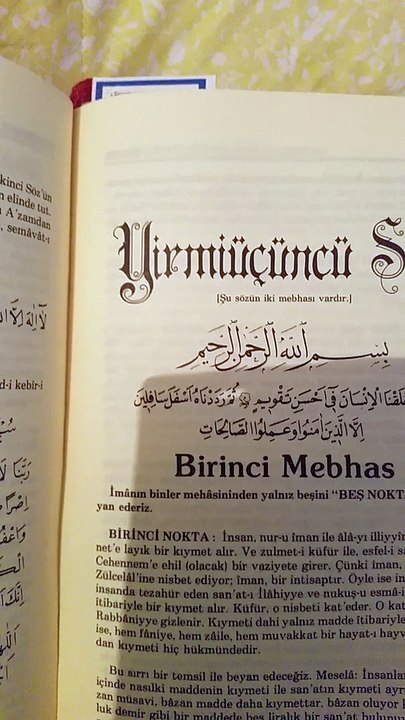 kinci Söz'ün
n elinde tut.
A'zamdan
, semâvât-ı
لَا اِلٰهَ اِلَّا
d-i kebir-i
رَبَّنَا لَا
Yirmiüçüncü S
[Şu sözün iki mebhası vardır.]
بِسْمِ اللّٰهِ الرَّحْمٰنِ الرَّحِيمِ
لَقْنَا الْاِنْسَانَ فٖٓى اَحْسَنِ تَقْوِيمٍ ثُمَّ رَدَدْنَاهُ اَسْفَلَ سَافِلِينَ
اِلَّا الَّذِينَ اٰمَنُوا وَعَمِلُوا الصَّالِحَاتِ
Birinci Mebhas
Îmanın binler mehâsininden yalnız beşini "BEŞ NOKT
yan ederiz.
BİRİNCİ NOKTA : İnsan, nur-u îman ile âlâ-yı illiyyîn
net'e layık bir kıymet alır. Ve zulmet-i küfür ile, esfel-i sa
Cehennem'e ehil (olacak) bir vaziyete girer. Çünki îman,
Zülcelâl'ine nisbet ediyor; îman, bir intisaptır. Öyle ise in
insanda tezahür eden san'at-ı İlâhiyye ve nukuş-u esmâ-i
îtibariyle bir kıymet alır. Küfür, o nisbeti kat'eder. O kat
Rabbâniyye gizlenir. Kıymeti dahi yalnız madde îtibariyle
ise, hem fâniye, hem zâile, hem muvakkat bir hayat-ı hayv
dan kıymeti hiç hükmündedir.
Bu sırrı bir temsil ile beyan edeceğiz. Meselâ: İnsanları
içinde nasılki maddenin kıymeti ile san'atın kıymeti ayrı
zan müsavi, bâzan madde daha kıymettar, bâzan oluyor k
luk demir gibi bir maddede beş liralık bir san'at bulunu